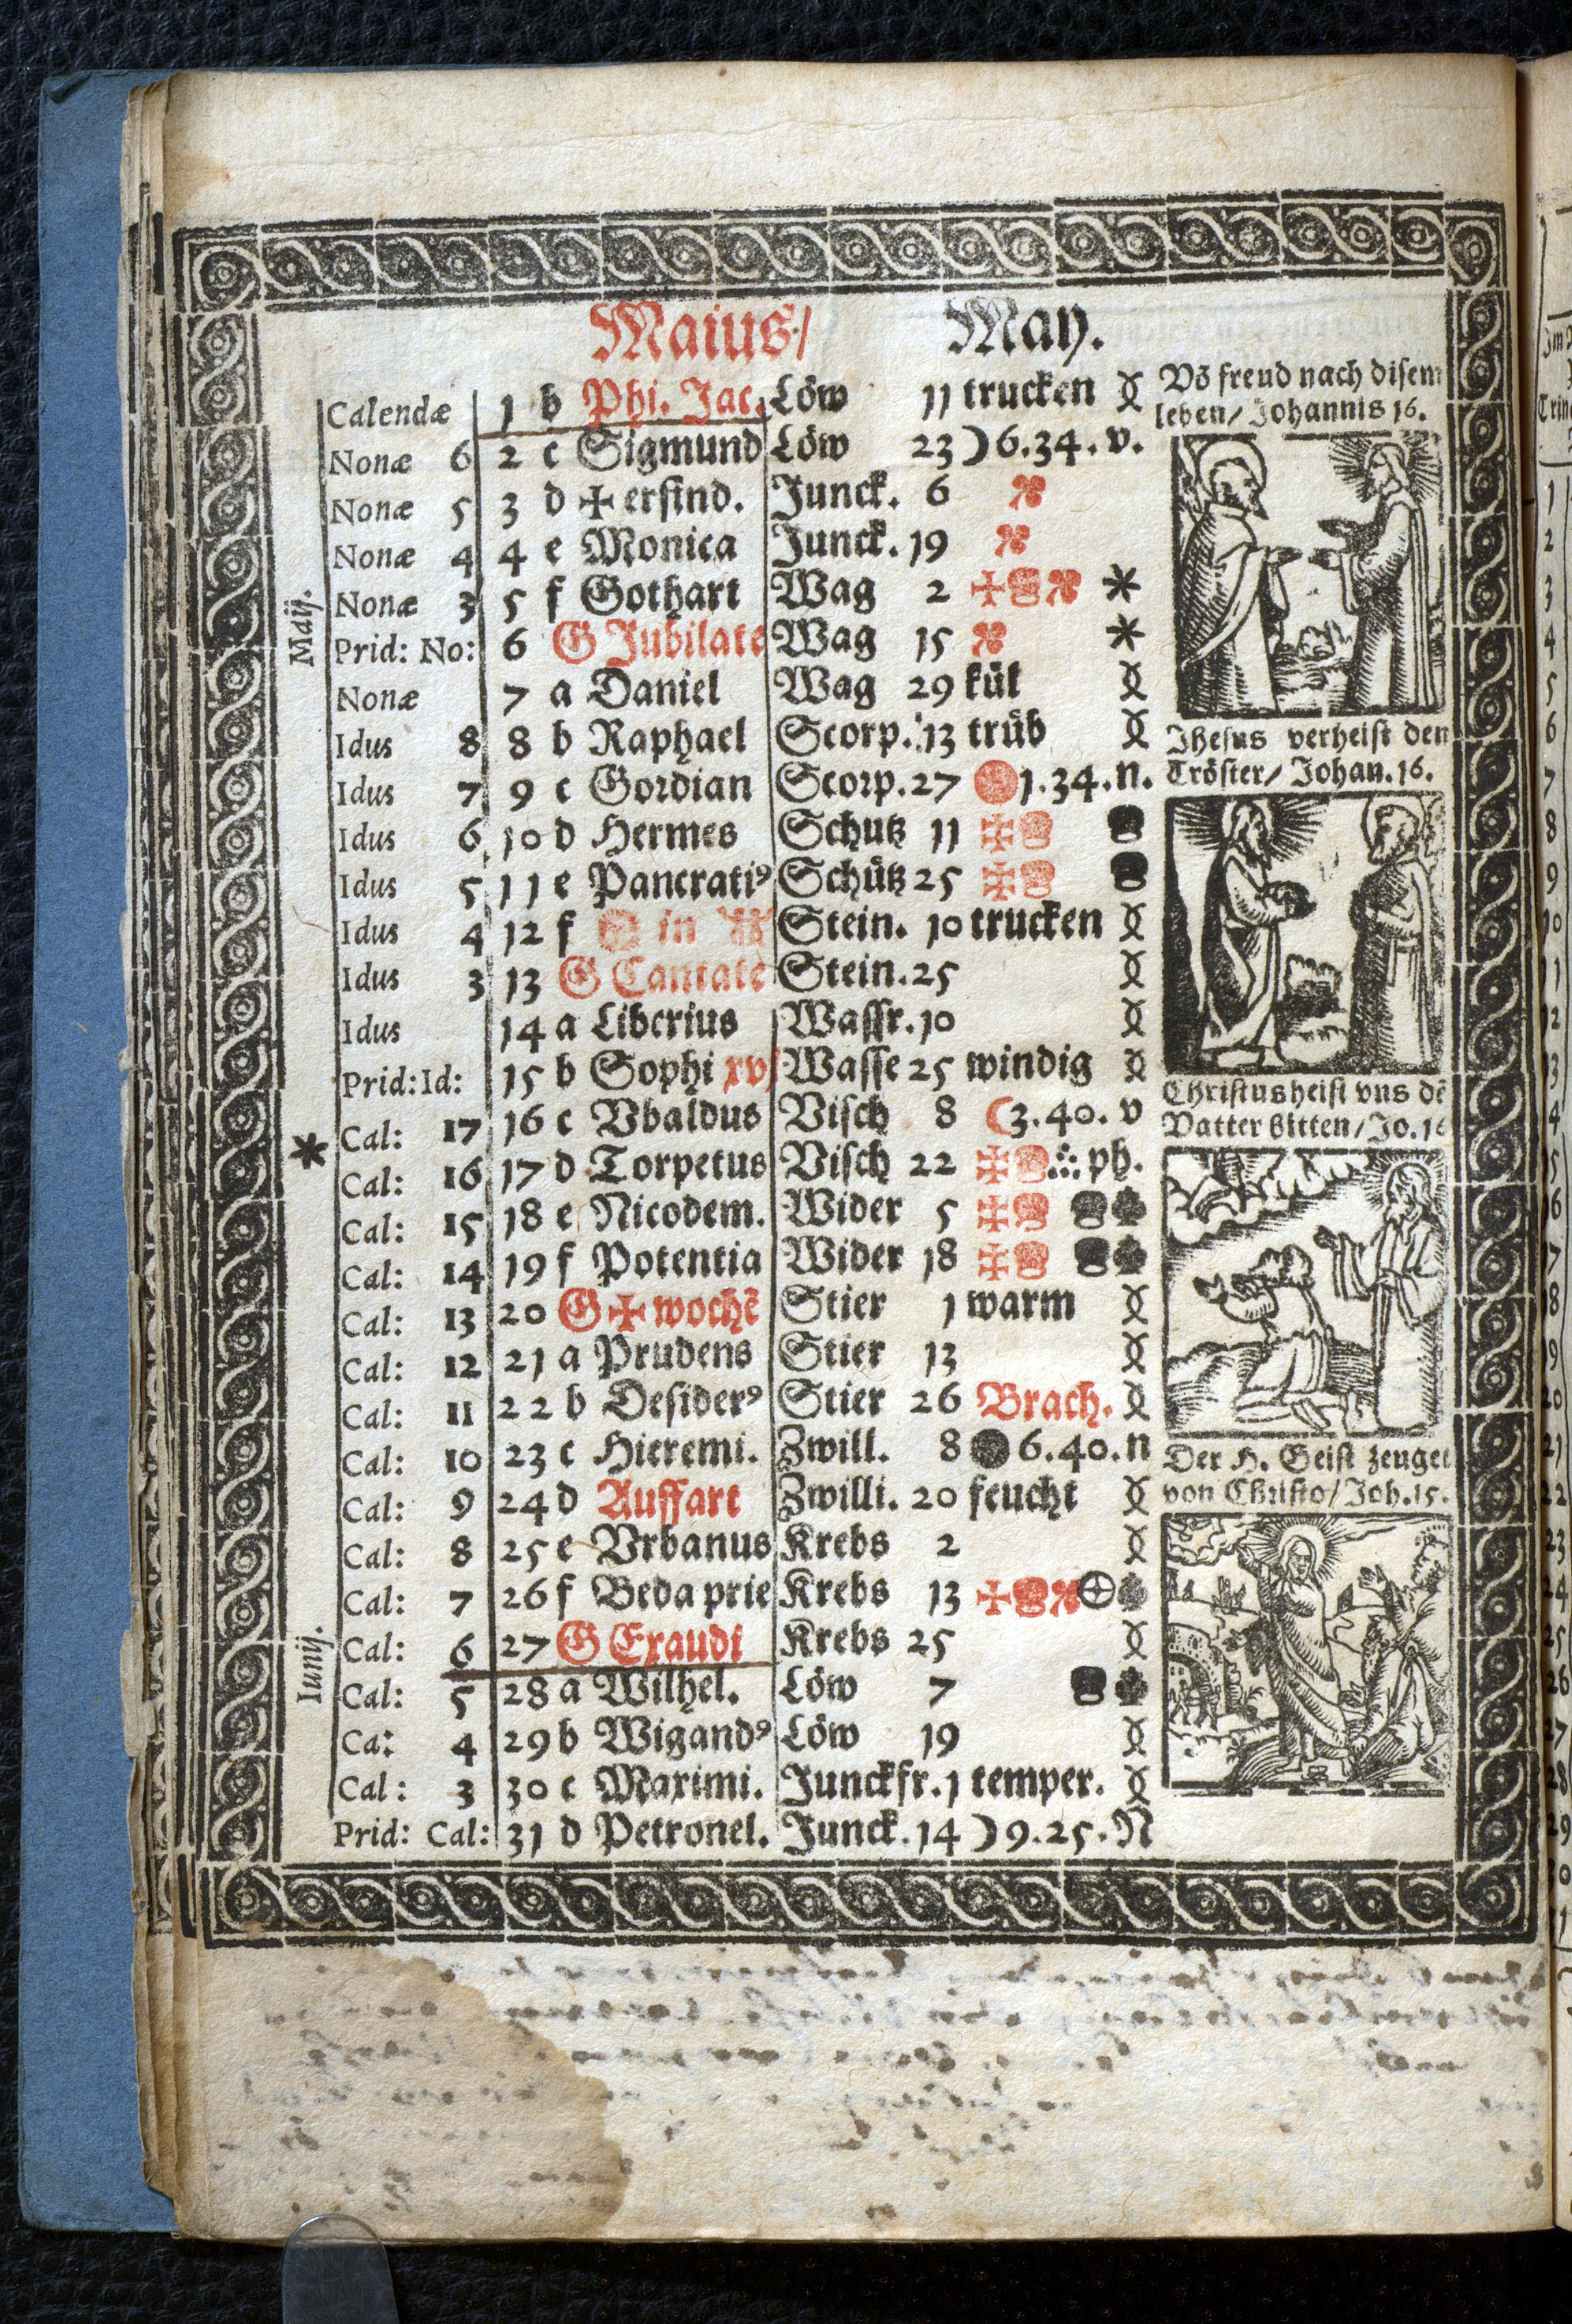 Maius/ May.
Calendæ 1 b Phi. Jac. Löw 11 trucken
Nonæ 6 2 c Sigmund Löw 23 ☽ 6.34. v.
Nonæ 5 3 d ✠ erfind. Junck. 6
Nonæ 4 4 e Monica Junck. 19
Nonæ 3 5 f Gothart Wag 2 ✠ *
Prid: No: 6 G Jubilate Wag 15 *
Nonæ 7 a Daniel Wag 29 kül
Idus 8 8 b Raphael Scorp. 13 trüb
Idus 7 9 c Gordian Scorp. 27 1.34.n.
Idus 6 10 d Hermes Schutz 11 ✠
Idus 5 11 e Pancratiꝰ Schütz 25 ✠
Idus 4 12 f ☉ in ♊ Stein. 10 trucken
Idus 3 13 G Cantate Stein. 25
Idus 14 a Liberius Wassr. 10
Prid: Id: 15 b Sophi xv Wasse 25 windig
Cal: 17 16 c Vbaldus Visch 8 ☾ 3.40. v
Cal: 16 17 d Torpetus Visch 22 ✠ ph.
Cal: 15 18 e Nicodem. Wider 5 ✠
Cal: 14 19 f Potentia Wider 18 ✠
Cal: 13 20 G ✠ wochē Stier 1 warm
Cal: 12 21 a Prudens Stier 13
Cal: 11 22 b Desiderꝰ Stier 26 Brach.
Cal: 10 23 c Hieremi. Zwill. 8 ● 6.40.n
Cal: 9 24 d Auffart Zwilli. 20 feucht
Cal: 8 25 e Vrbanus Krebs 2
Cal: 7 26 f Beda prie Krebs 13 ✠
Cal: 6 27 G Exaudi Krebs 25
Cal: 5 28 a Wilhel. Löw 7
Ca: 4 29 b Wigandꝰ Löw 19
Cal: 3 30 c Maximi. Junckfr. 1 temper.
Prid: Cal: 31 d Petronel. Junck. 14 ☽ 9.25. N
Maij.
*
Iunij.
Vō freud nach disem
leben/ Johannis 16.
Jhesus verheist den
Tröster/ Johan. 16.
Christus heist vns dē
Vatter bitten/ Jo. 16
Der H. Geist zeuget
von Christo/ Joh. 15.